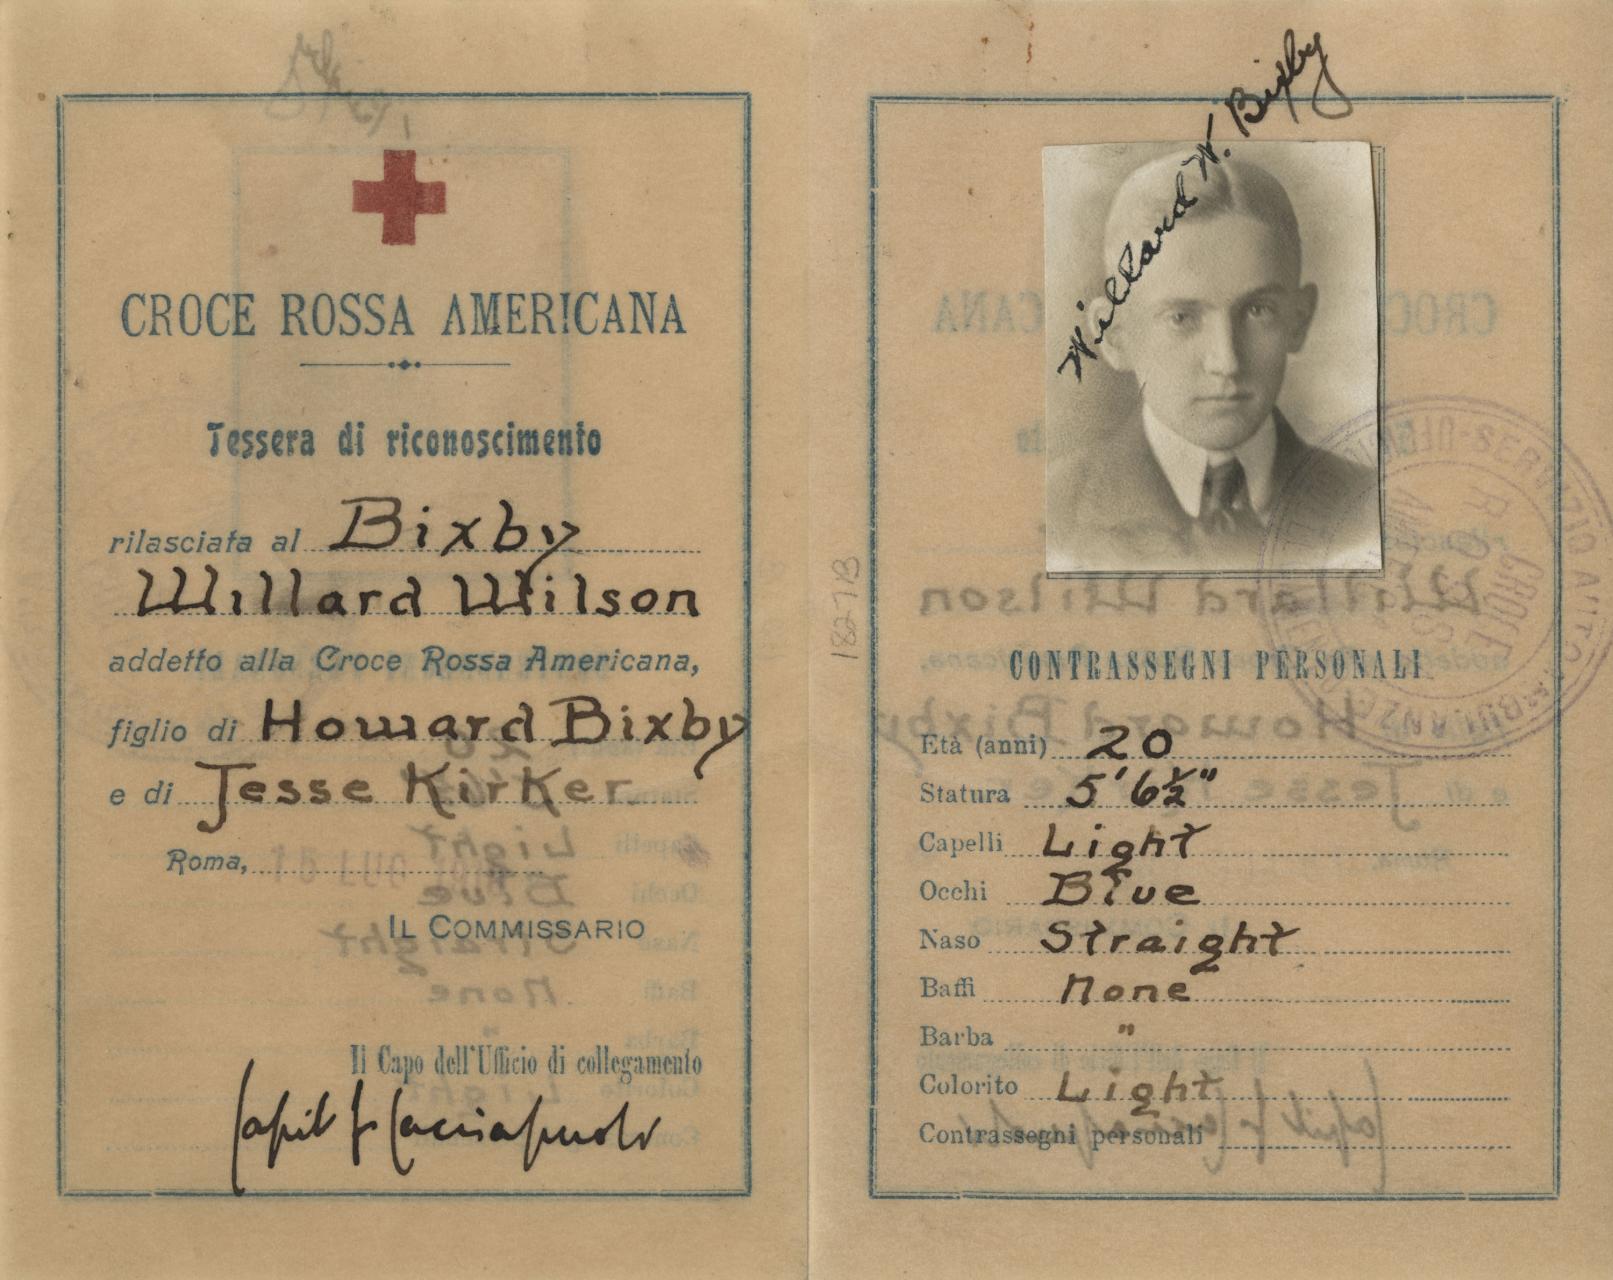 CROCE ROSSA AMERICANA
Tessera di riconoscimento
rilasciata al Bixby
Willard Wilson
addetto alla Croce Rossa Americana,
figlio di Howard Bixby
e di Jesse Kirker
Roma, 15 LUG
IL COMMISSARIO
Il Capo dell'Ufficio di collegamento
Willard W. Bixby
18271B
CONTRASSEGNI PERSONALI
Età (anni) 20
Statura 5' 6½"
Capelli Light
Occhi Blue
Naso Straight
Baffi None
Barba "
Colorito Light
Contrassegni personali